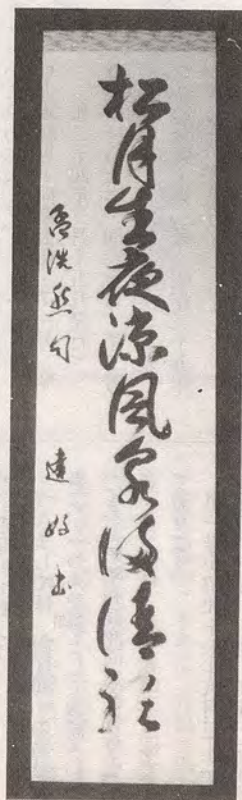 松月生夜涼風泉滿清聽
孟浩然句 書